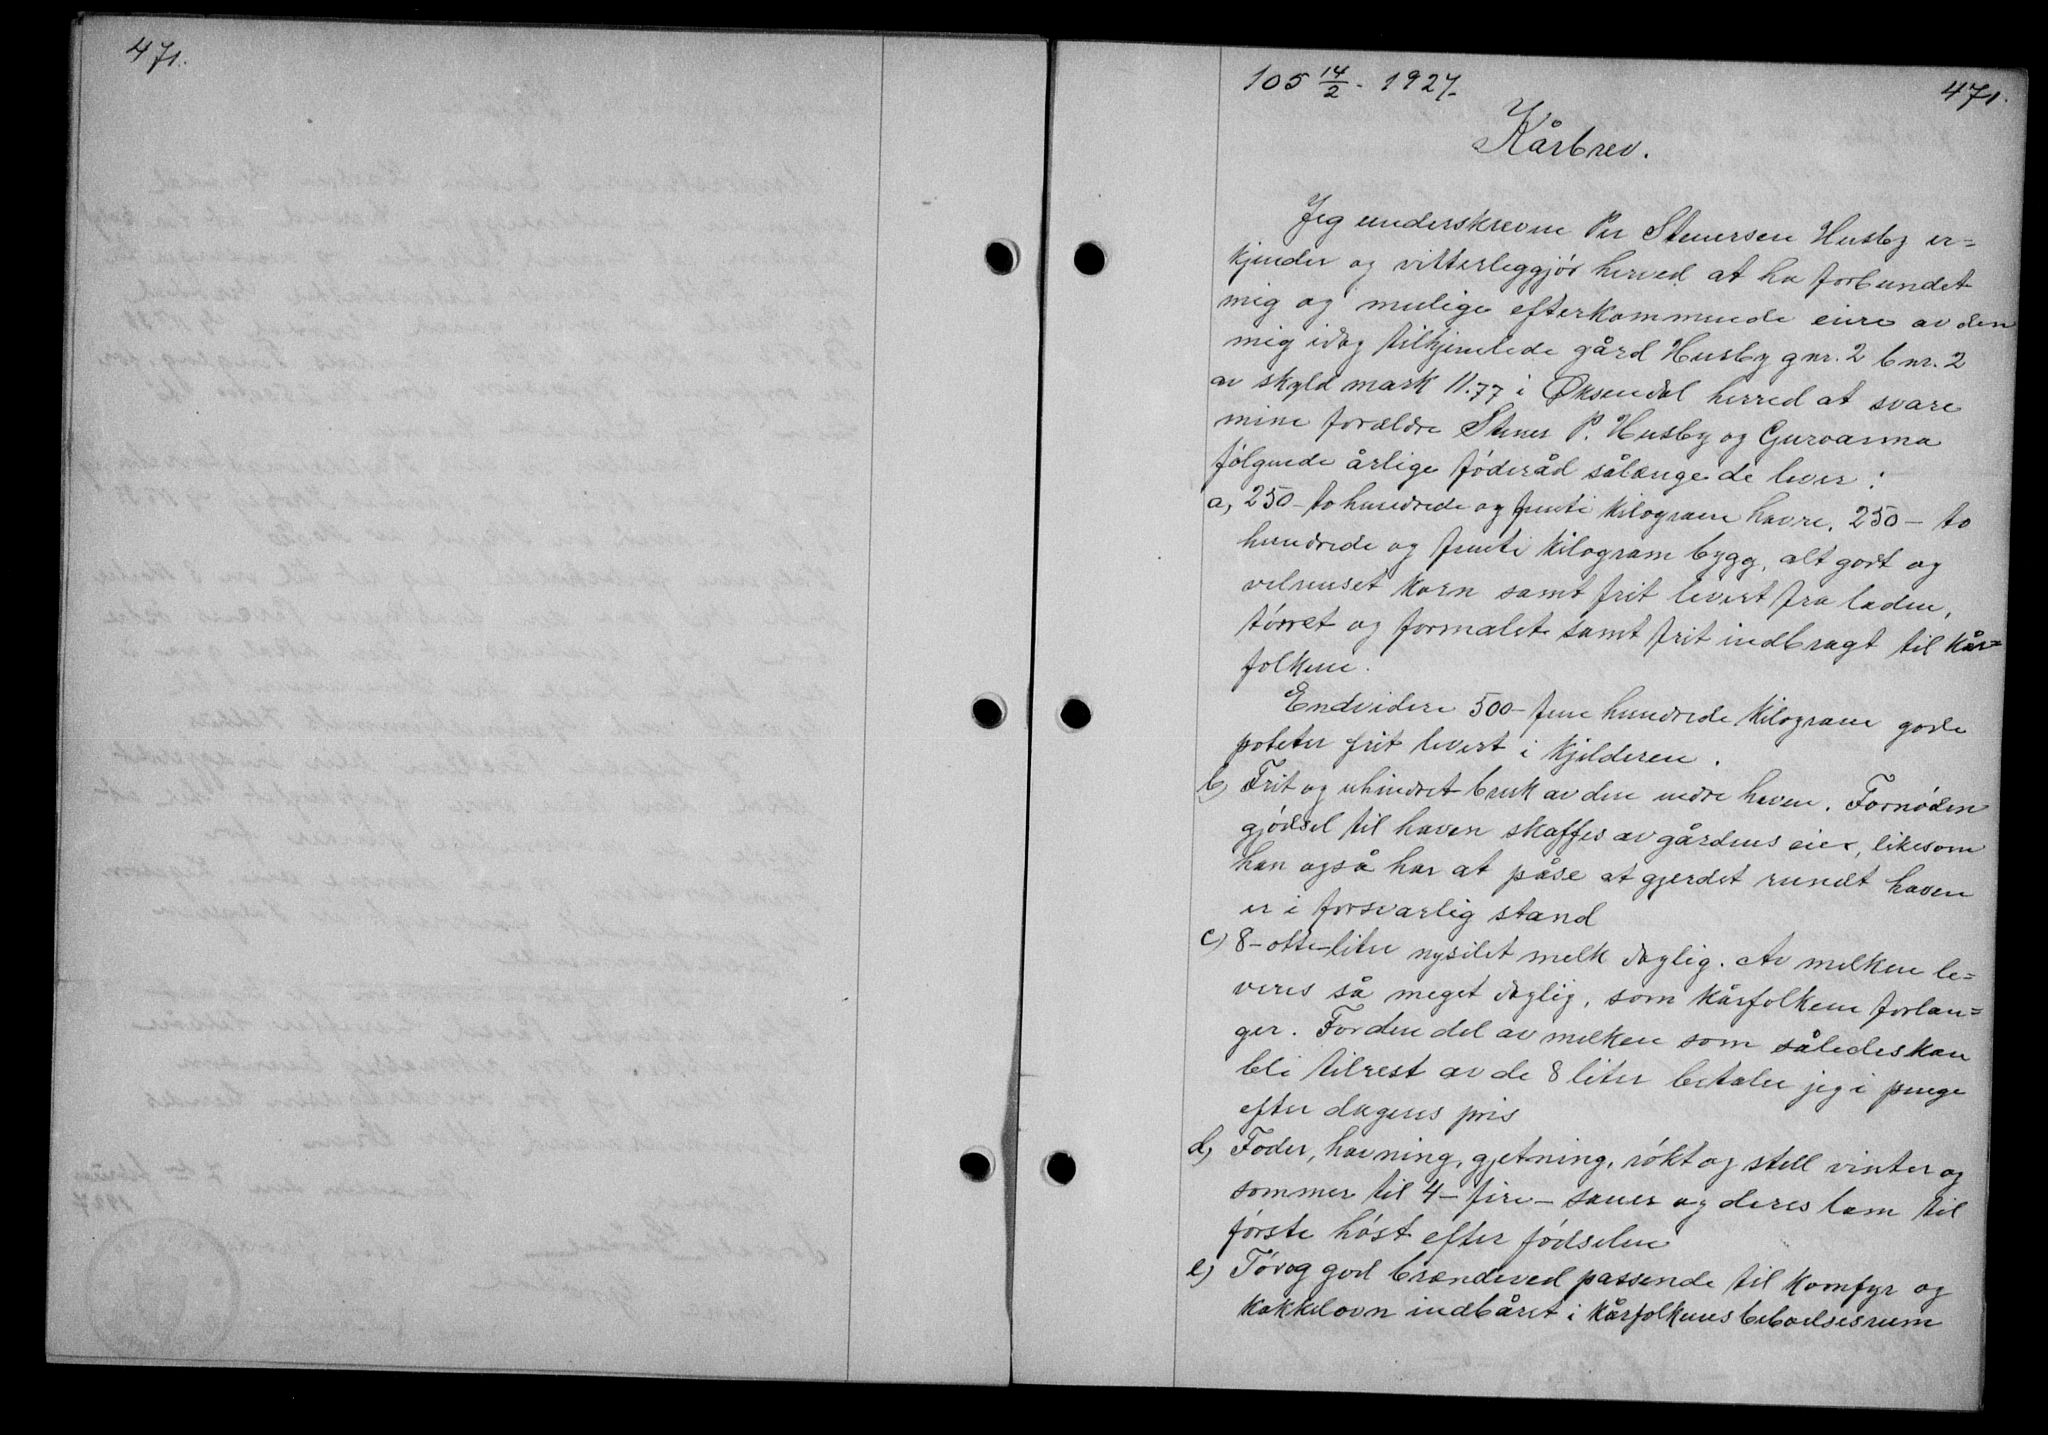 471.
105 14/2 - 1927.
471.
Kårbrev.
Jeg underskrevne Per Stenersen Husby er=
kjender og vitterleggjör herved at ha forbundet
mig og mulige efterkommende eiere av den
mig idag tilskjøtede gård Husby gnr. 2 bnr. 2
av skyld mark 11.77 i Øksendal herred at svare
mine forældre Stener P. Husby og Guroanna
følgende årlige föderåd sålænge de lever:
a, 250 - to hundrede og femti kilogram havre, 250 - to
hundrede og femti kilogram bygg, alt godt og
velrenset korn samt frit levert fra laden,
törret og formalet samt frit indbragt til kår=
folkene.
Endvidere 500 - fem hundrede kilogram gode
poteter frit levert i kjelderen.
b) Frit og uhindret bruk av den nedre haven. Fornöden
gjödsel til haven skaffes av gårdens eier, likesom
han også har at påse at gjerdet rundt haven
er i forsvarlig stand
c) 8 - otte - liter nysilet melk daglig. Av melken le=
veres så meget daglig, som kårfolkene forlan=
ger. For den del av melken som således kan
bli tilrest av de 8 liter betaler jeg i penge
efter dagens pris
d, Foder, havning, gjetning, rökt og stell vinter og
sommer til 4 - fire - sauer og deres lam til
förste höst efter födselen
e) Tör og god brændeved passende til komfyr og
kakkelovn indbåret i kårfolkenes beboelsesrum